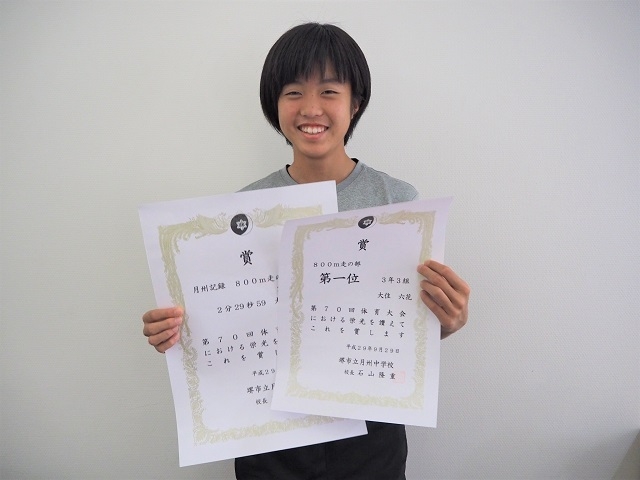 賞
月州記録 ８００ｍ走の
２分２９秒５９
第７０回体
における栄光を
これを賞し
平成２
堺市立月
校長
賞
８００ｍ走の部
第一位 ３年３組
大住 六花
第７０回体育大会
における栄光を讃えて
これを賞します
平成２９年９月２９日
堺市立月州中学校
校長 石山隆重